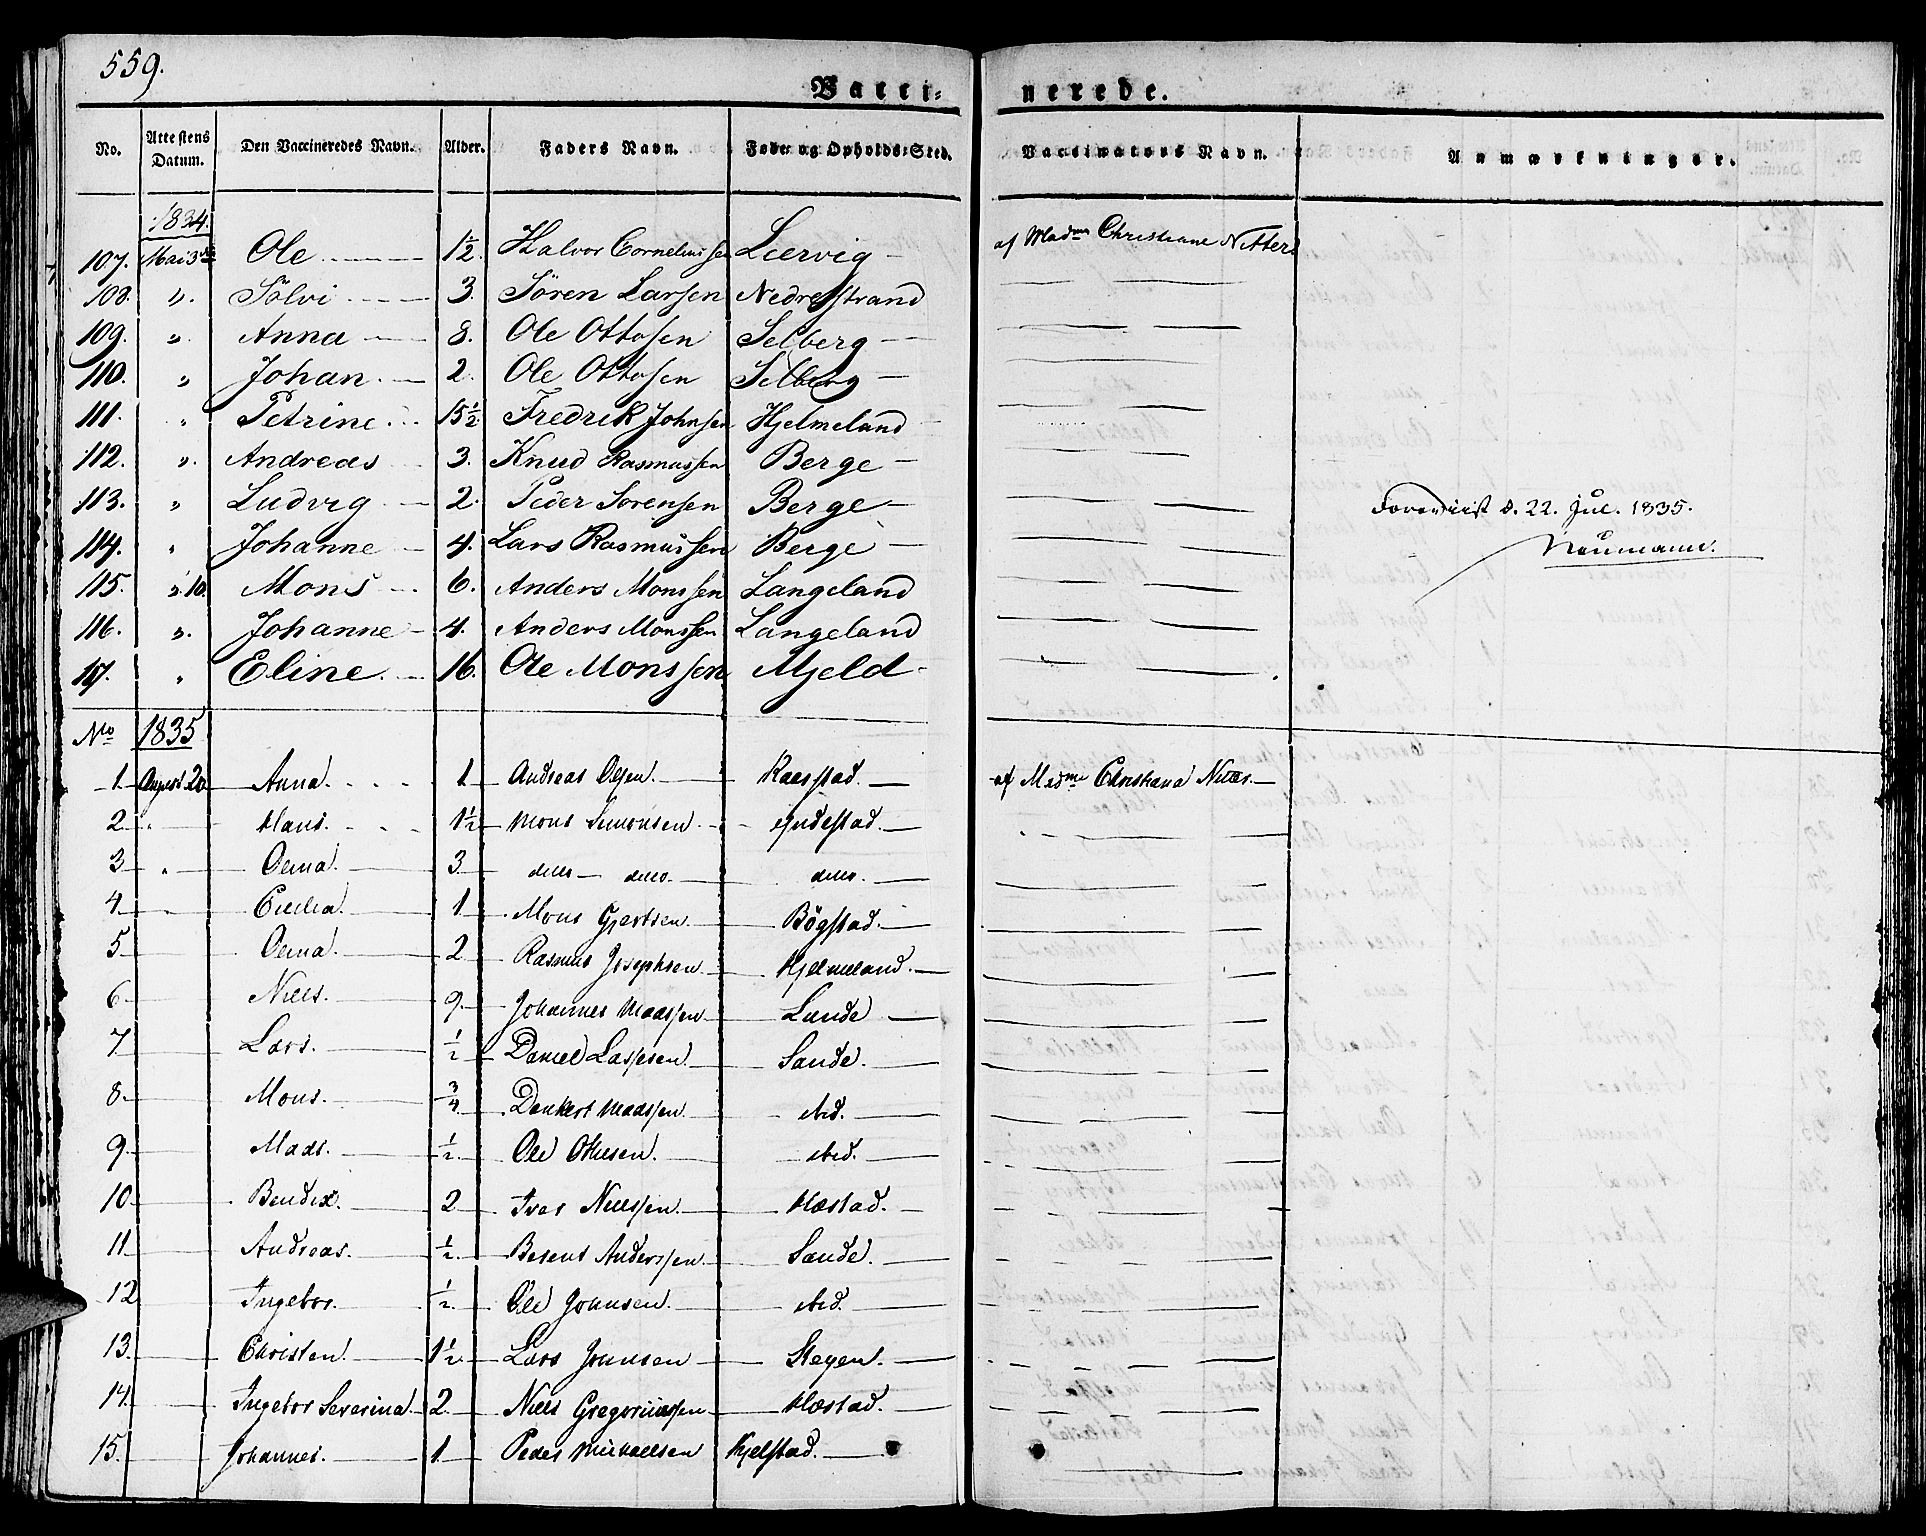 559.
Vacci- nerede.
No. Attestens Datum. Den Vaccineredes Navn. Alder. Faders Navn. Føde og Opholds-Sted. Vaccinators Navn. Anmærkninger.
1834.
107. Mai 3 Ole 1½ Halvor Corneliussen Leervig af Madme Christiane Nitters
108. " Sölvi 3. Sören Larsen Nedrestrand
109. " Anna 8. Ole Ottosen Selberg
110. " Johan 2. Ole Ottosen Selberg
111. " Petrine 15½ Fredrik Johnsen Hjelmeland
112. " Andreas 3. Knud Rasmussen Berge
113. " Ludvig 2. Peder Sörensen Berge Foreviist d. 22. Jul. 1835.
114. " Johanne 4. Lars Rasmussen Berge Neumann.
115. " 10. Mons 6. Anders Monssen Langeland
116. " Johanne 4. Anders Monssen Langeland
117. " Eline 16. Ole Monssen Mjeld
No 1835
1 August 20 Anna 1 Andreas Olsen. af Madme Christiana
2 " Hans. 1½ Mons Simonsen Yndestad.
3 " Oema. 3 ditto ditto ditto.
4 1 Mons Gjertsen. Bögstad.
5 Oema. 2 Rasmus Josephsen Hjelmeland.
6 Niels. 9 Johannes Madssen Lunde
7 Lars. ½ Daniel Lassesen. Sande.
8 Mons. ¾ Dankert Madssen ibid.
9 Mads. ½ Ole ibid.
10 Bendix. 2 Ivar Nielssen. Hæstad.
11 Andreas. ½ Berent Anderssen. Sande.
12 Ingebor. ½ Ole Johnsen. ibid.
13. Christen. 1½ Lars Johnsen
14 Ingebor Severina 2 Niels Gregoriussen Hæstad.
15. Johannes. 1 Peder Michaelsen Hjelstad.